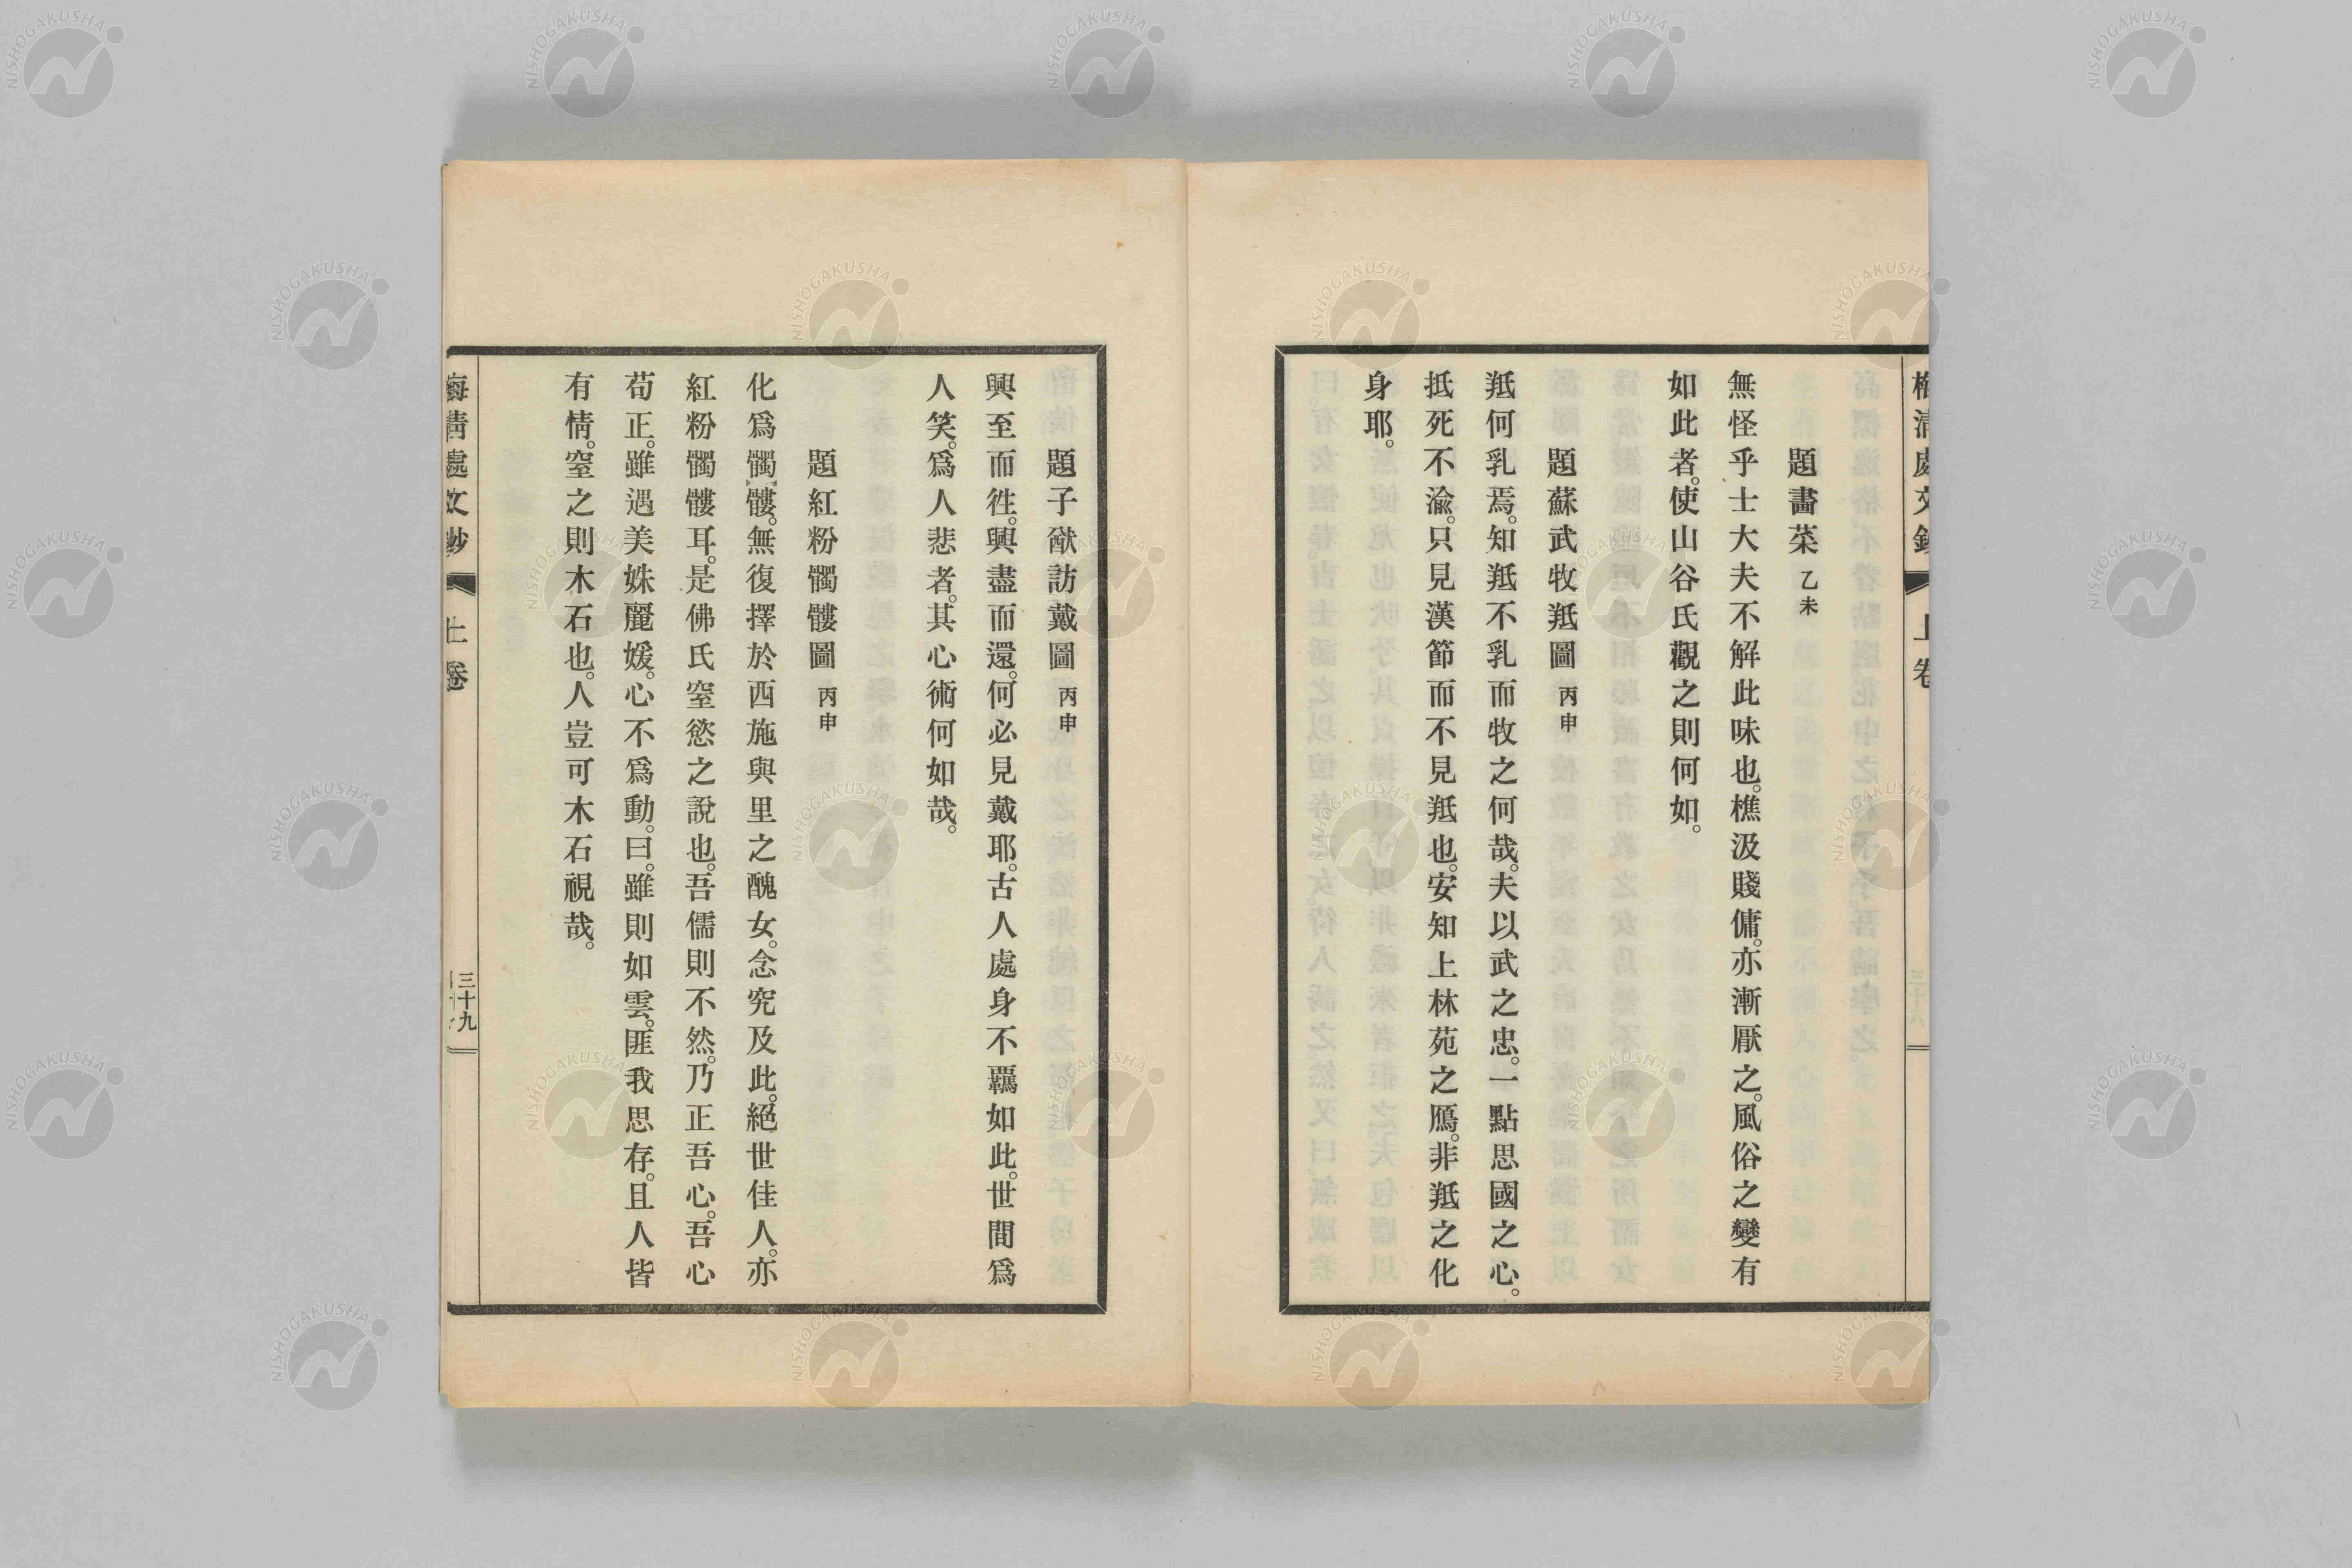 題畵菜 乙未
無怪乎士大夫不解此味也。樵汲賤傭。亦漸厭之。風俗之變有
如此者。使山谷氏觀之則何如。
題蘇武牧羝圖 丙申
羝何乳焉。知羝不乳而牧之何哉。夫以武之忠。一點思國之心。
抵死不渝。只見漢節而不見羝也。安知上林苑之鴈。非羝之化
身耶。
題子猷訪戴圖 丙申
興至而徃。興盡而還。何必見戴耶。古人處身不羈如此。世間爲
人笑。爲人悲者。其心術何如哉。
題紅粉髑髏圖 丙申
化爲髑髏。無復擇於西施與里之醜女。念究及此。絕世佳人。亦
紅粉髑髏耳。是佛氏窒慾之說也。吾儒則不然。乃正吾心。吾心
苟正。雖遇美姝麗媛。心不爲動。曰。雖則如雲。匪我思存。且人皆
有情。窒之則木石也。人豈可木石視哉。
梅清處文鈔 上卷
三十九
NISHOGAKUSHA